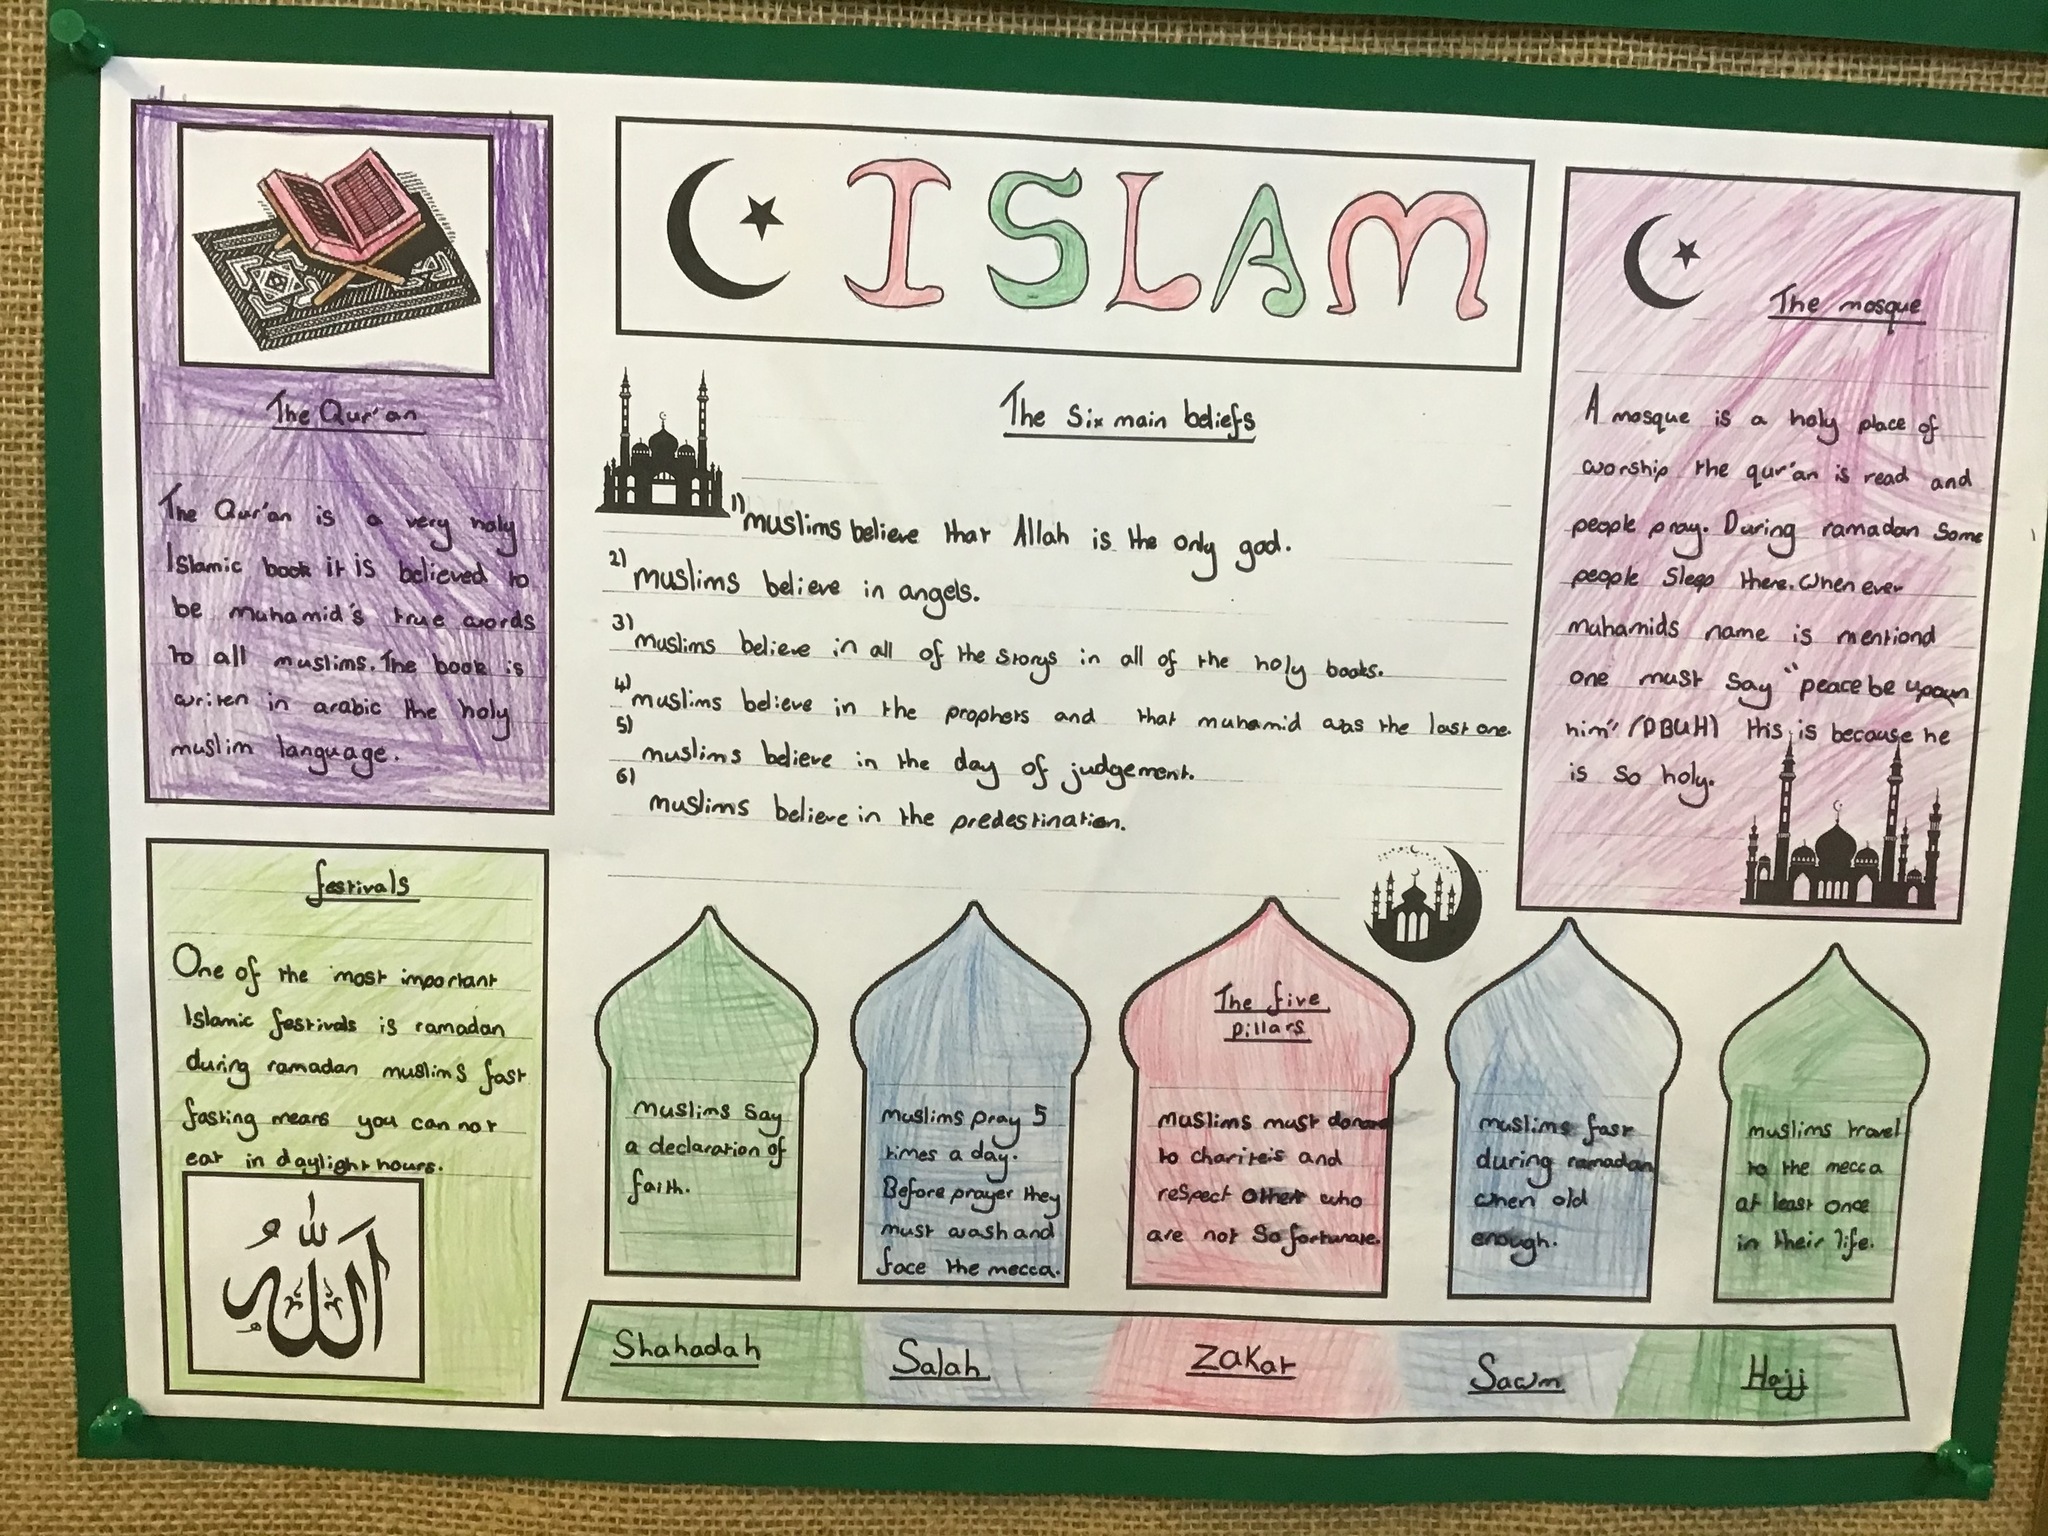 ISLAM
The Qur'an
The Qur'an is a very holy
Islamic book it is believed to
be muhamid's true words
to all muslims. The book is
writen in arabic the holy
muslim language.
festivals
One of the most important
Islamic festivals is ramadan
during ramadan muslims fast
fasting means you can not
eat in daylight hours.
الله
The six main beliefs
1) muslims believe that Allah is the only god.
2) muslims believe in angels.
3) muslims believe in all of the storys in all of the holy books.
4) muslims believe in the prophets and that muhamid was the last one.
5) muslims believe in the day of judgement.
6) muslims believe in the predestination.
The mosque
A mosque is a holy place of
worship the qur'an is read and
people pray. During ramadan some
people sleep there. When ever
muhamids name is mentiond
one must say "peace be upown
him" (PBUH) this is because he
is so holy.
The five
pillars
muslims say
a declaration of
faith.
muslims pray 5
times a day.
Before prayer they
must wash and
face the mecca.
muslims must donate
to chariteis and
respect other who
are not so fortunate.
muslims fast
during ramadan
when old
enough.
muslims travel
to the mecca
at least once
in their life.
Shahadah
Salah
Zakat
Sawm
Hajj